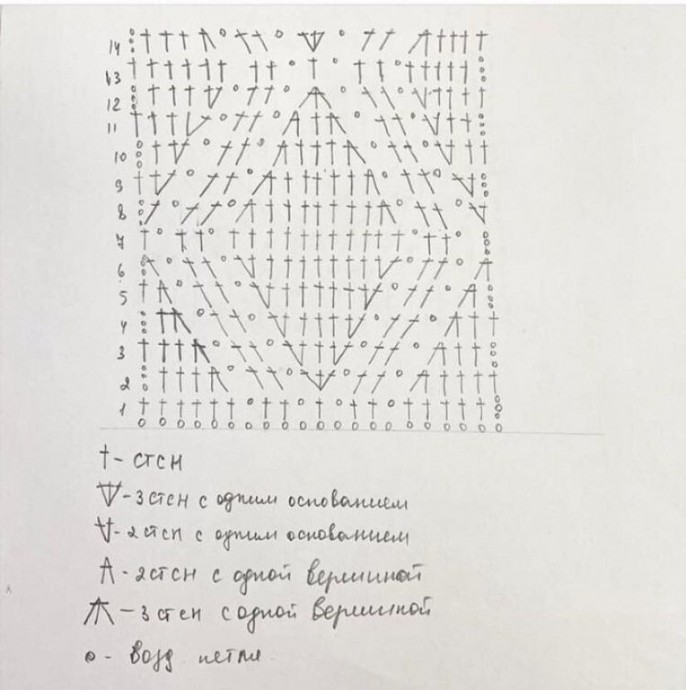 14
13
12
11
10
9
8
7
6
5
4
3
2
1
- стсн
- 3 стсн с одним основанием
- 2 стсн с одним основанием
- 2 стсн с одной вершиной
- 3 стсн с одной вершиной
- возд петли